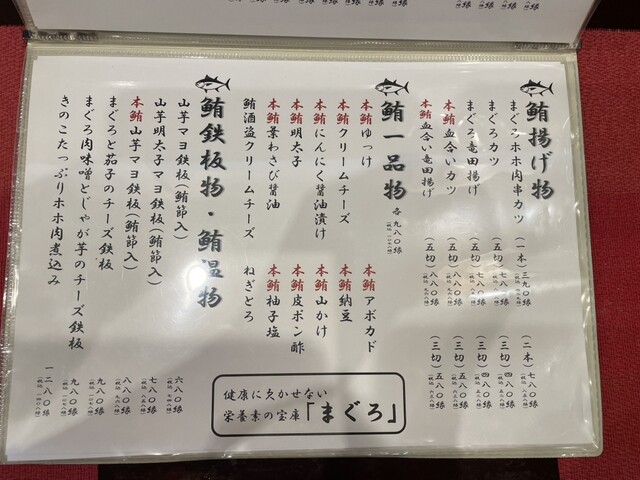 鮪揚げ物
まぐろホホ肉串カツ (一本) 三九〇縁 (二本) 七八〇縁
まぐろカツ (五切) 七八〇縁 (三切) 四八〇縁
まぐろ竜田揚げ (五切) 七八〇縁 (三切) 四八〇縁
本鮪血合いカツ (五切) 八八〇縁 (三切) 五八〇縁
本鮪血合い竜田揚げ (五切) 八八〇縁 (三切) 五八〇縁
鮪一品物
各九八〇縁
本鮪ゆっけ
本鮪クリームチーズ
本鮪にんにく醤油漬け
本鮪明太子
本鮪葉わさび醤油
鮪酒盗クリームチーズ
本鮪アボカド
本鮪納豆
本鮪山かけ
本鮪皮ポン酢
本鮪柚子塩
ねぎとろ
鮪鉄板物・鮪温物
山芋マヨ鉄板(鮪節入) 六八〇縁
山芋明太子マヨ鉄板(鮪節入) 七八〇縁
本鮪山芋マヨ鉄板(鮪節入) 八八〇縁
まぐろと茄子のチーズ鉄板 九八〇縁
まぐろ肉味噌とじゃが芋のチーズ鉄板 九八〇縁
きのこたっぷりホホ肉煮込み 一二八〇縁
健康に欠かせない
栄養素の宝庫「まぐろ」